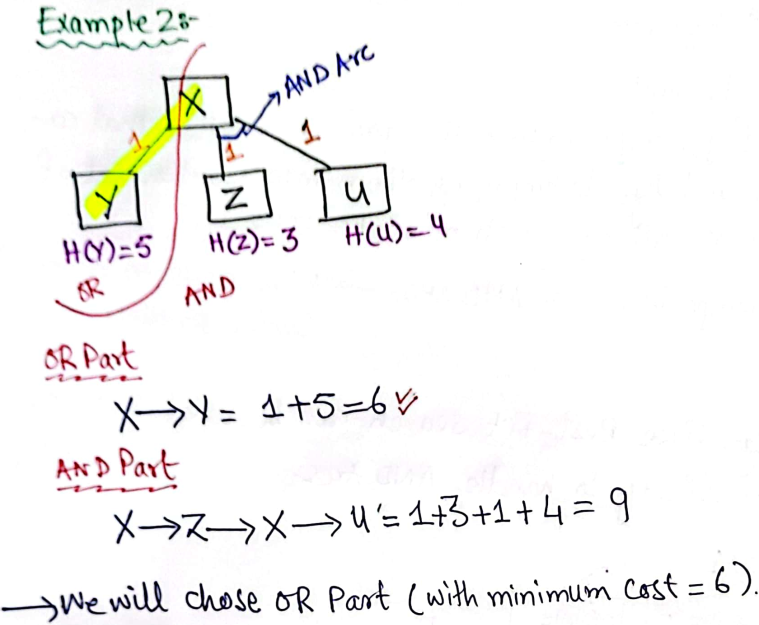 Example 2:-
X
AND Arc
1
1
1
Y
Z
U
H(Y)=5
H(Z)=3
H(U)=4
OR
AND
OR Part
X→Y= 1+5=6✓
AND Part
X→Z→X→U= 1+3+1+4= 9
→We will chose OR Part (with minimum cost=6).